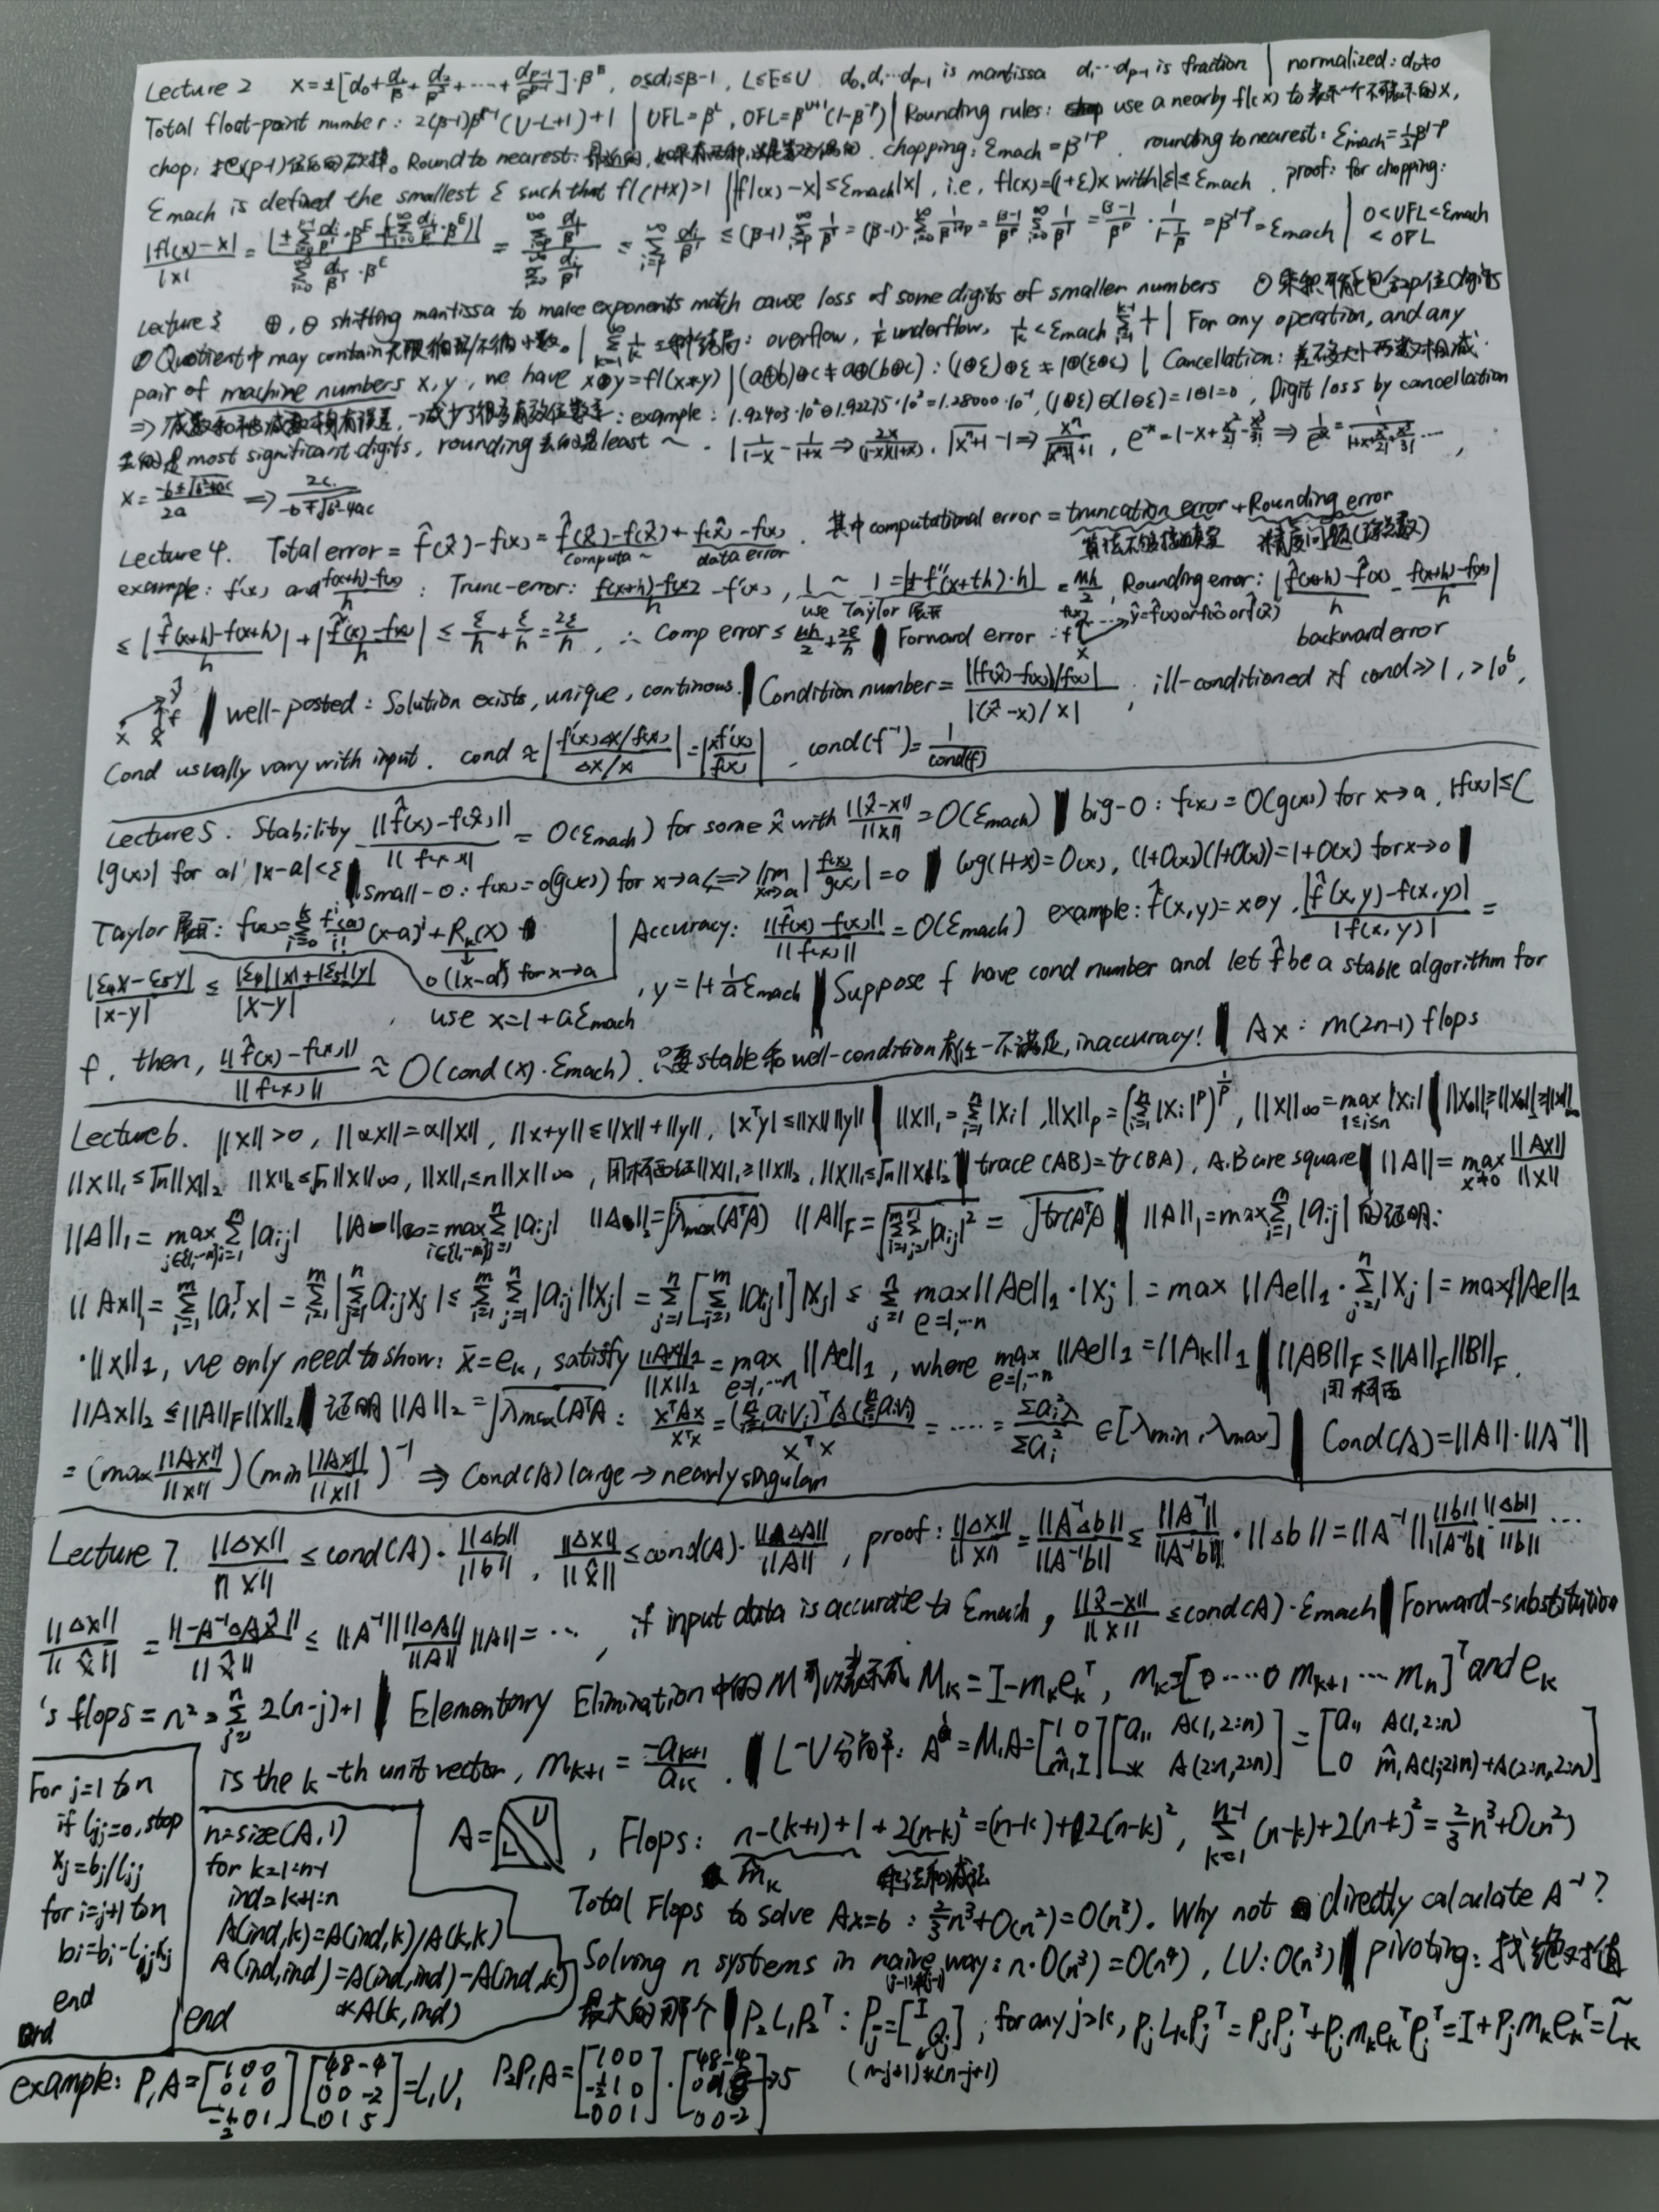 Lecture 2 x=±[d₀+d₁/β+d₂/β²+⋯+d_{p-1}/β^{p-1}]·β^E, 0≤dᵢ≤β-1, L≤E≤U d₀d₁⋯d_{p-1} is mantissa d₁⋯d_{p-1} is fraction | normalized: d₀≠0
Total float-point number: 2(β-1)β^{p-1}(U-L+1)+1 | UFL=β^L, OFL=β^{U+1}(1-β^{-p}) | Rounding rules: use a nearby fl(x) to 表示一个不可表示的x,
chop: 把(p-1)位后的砍掉。Round to nearest: chopping: Ɛmach=β^{1-p}. rounding to nearest: Ɛmach=½β^{1-p}
Ɛmach is defined the smallest Ɛ such that fl(1+Ɛ)>1 | |fl(x)-x|≤Ɛmach|x|, i.e, fl(x)=(1+Ɛ)x with |Ɛ|≤Ɛmach. proof: for chopping:
|fl(x)-x|/|x| ≤ (β-1)·Σ 1/β^{i+p} = (β-1)/β^p Σ 1/β^i = (β-1)/β^p · 1/(1-1/β) = β^{1-p} = Ɛmach | 0<UFL<Ɛmach<OFL
Lecture 3 ⊕, ⊖ shifting mantissa to make exponents match cause loss of some digits of smaller numbers ⊙ 乘积可能包含2p位digits
⊘ Quotient中 may contain 无限循环/不循环小数。| Σ 1/k 三种结局: overflow, 1/k underflow, 1/k<Ɛmach Σ 1/i | For any operation, and any
pair of machine numbers x,y, we have x⊛y=fl(x*y) | (a⊕b)⊕c≠a⊕(b⊕c): (1⊕Ɛ)⊕Ɛ≠1⊕(Ɛ⊕Ɛ) | Cancellation: 差不多大小两数相减
example: 1.92403·10²⊖1.92275·10²=1.28000·10⁻¹, (1⊕Ɛ)⊖(1⊕Ɛ)=1⊖1=0, Digit loss by cancellation
丢的是most significant digits, rounding 丢的是least ~. | 1/(1-x) - 1/(1+x) ⇒ 2x/((1-x)(1+x)), √(xⁿ+1) -1 ⇒ xⁿ/(√(xⁿ+1)+1), e^{-x}=1-x+x²/2!-x³/3! ⇒ 1/e^x=1/(1+x+x²/2!+x³/3!⋯),
x=(-b±√(b²-4ac))/2a ⇒ 2c/(-b∓√(b²-4ac))
Lecture 4. Total error = f̂(x̂)-f(x)=f̂(x̂)-f(x̂)+f(x̂)-f(x). 其中computational error = truncation error + Rounding error
computa~ data error 算法不够接近真实 精度问题
example: f'(x) and (f(x+h)-f(x))/h : Trunc-error: (f(x+h)-f(x))/h -f'(x), |~|=|½f''(x+th)·h| = Mh/2, Rounding error: |(f̂(x+h)-f̂(x))/h - (f(x+h)-f(x))/h|
use Taylor 展开
≤ |(f̂(x+h)-f(x+h))/h| + |(f̂(x)-f(x))/h| ≤ Ɛ/h+Ɛ/h=2Ɛ/h, ∴ Comp error ≤ Mh/2+2Ɛ/h | Forward error: f(x) ŷ=f̂(x) or f(x̂) or f̂(x̂) backward error
| well-posted: Solution exists, unique, continous. | Condition number = |(f(x̂)-f(x))/f(x)| / |(x̂-x)/x|, ill-conditioned if cond≫1, >10⁶,
Cond usually vary with input. cond ≈ |(f'(x)Δx/f(x))/(Δx/x)| = |xf'(x)/f(x)|, cond(f⁻¹)=1/cond(f)
Lecture 5. Stability ||f̂(x)-f(x̂)||/||f(x)|| = O(Ɛmach) for some x̂ with ||x̂-x||/||x|| = O(Ɛmach) | big-O: f(x)=O(g(x)) for x→a, |f(x)|≤C
|g(x)| for al' |x-a|<Ɛ | small-o: f(x)=o(g(x)) for x→a ⟺ lim_{x→a} |f(x)/g(x)|=0 | log(1+x)=O(x), (1+O(x))(1+O(x))=1+O(x) for x→0 |
Taylor 展开: f(x)=Σ fⁱ(a)/i! (x-a)ⁱ+R_k(x) | Accuracy: ||f̂(x)-f(x)||/||f(x)|| = O(Ɛmach) example: f̂(x,y)=x⊖y. |f̂(x,y)-f(x,y)|/|f(x,y)| =
o(|x-a|ᵏ) for x→a
|Ɛ₄x-Ɛ₅y|/|x-y| ≤ (|Ɛ₄||x|+|Ɛ₅||y|)/|x-y|, use x=1+aƐmach, y=1+1/a Ɛmach | Suppose f have cond number and let f̂ be a stable algorithm for
f, then, ||f̂(x)-f(x)||/||f(x)|| ≈ O(cond(x)·Ɛmach). 只要stable和well-condition有任一不满足, inaccuracy! | Ax: m(2n-1) flops
Lecture 6. ||x||>0, ||αx||=α||x||, ||x+y||≤||x||+||y||, |xᵀy|≤||x||||y|| | ||x||₁=Σ|xᵢ|, ||x||_p=(Σ|xᵢ|^p)^{1/p}, ||x||∞=max_{1≤i≤n}|xᵢ| | ||x||₁≥||x||₂≥||x||∞
||x||₁≤√n||x||₂ ||x||₂≤√n||x||∞, ||x||₁≤n||x||∞, 用柯西证||x||₁≥||x||₂, ||x||₁≤√n||x||₂ | trace(AB)=tr(BA), A.B are square | ||A||=max_{x≠0} ||Ax||/||x||
||A||₁=max_{j∈{1,⋯n}} Σ|aᵢⱼ| ||A||∞=max_{i∈{1,⋯m}} Σ|aᵢⱼ| ||A||₂=√λmax(AᵀA) ||A||_F=√ΣΣ|aᵢⱼ|² = √tr(AᵀA) | ||A||₁=maxΣ|aᵢⱼ| 的证明:
||Ax||₁=Σ|aᵢᵀx|=Σ|Σaᵢⱼxⱼ|≤ΣΣ|aᵢⱼ||xⱼ|=Σ[Σ|aᵢⱼ|]|xⱼ|≤Σ max_{e=1,⋯n}||Ae||₁·|xⱼ|=max||Ae||₁·Σ|xⱼ|=max||Ae||₁
·||x||₁, we only need to show: x̄=e_k, satisfy ||Ax||₁/||x||₁=max_{e=1,⋯n}||Ae||₁, where max_{e=1,⋯n}||Ae||₁=||A_k||₁ | ||AB||_F≤||A||_F||B||_F.
用柯西
||Ax||₂≤||A||_F||x||₂ | 证明||A||₂=√λmax(AᵀA): xᵀAx/xᵀx=(Σaᵢvᵢ)ᵀA(Σaᵢvᵢ)/xᵀx=⋯⋯=Σaᵢ²λ/Σaᵢ²∈[λmin,λmax] | Cond(A)=||A||·||A⁻¹||
=(max ||Ax||/||x||)(min ||Ax||/||x||)⁻¹ ⇒ Cond(A) large → nearly singular
Lecture 7. ||Δx||/||x||≤cond(A)·||Δb||/||b||, ||Δx||/||x̂||≤cond(A)·||ΔA||/||A||, proof: ||Δx||/||x||=||A⁻¹Δb||/||A⁻¹b||≤||A⁻¹||/||A⁻¹b||·||Δb||=||A⁻¹||·||b||/||A⁻¹b||·||Δb||/||b||⋯
||Δx||/||x̂||=||-A⁻¹ΔAx̂||/||x̂||≤||A⁻¹||||ΔA||/||A||||A||=⋯, if input data is accurate to Ɛmach, ||x̂-x||/||x||≤cond(A)·Ɛmach | Forward-substitution
's flops=n²=Σ2(n-j)+1 | Elementary Elimination中的M可以表示成M_k=I-m_ke_kᵀ, m_k=[0⋯⋯0 m_{k+1}⋯m_n]ᵀ and e_k
is the k-th unit vector, m_{k+1}=-a_{k+1}/a_k. | L-U分解: A¹=M₁A=[1 0; m̂₁ I][a₁₁ A(1,2:n); * A(2:n,2:n)]=[a₁₁ A(1,2:n); 0 m̂₁A(1,2:n)+A(2:n,2:n)]
For j=1 to n
if lⱼⱼ=0, stop
xⱼ=bⱼ/lⱼⱼ
for i=j+1 to n
bi=bi-lᵢⱼxⱼ
end
end
n=size(A,1)
for k=1:n-1
ind=k+1:n
A(ind,k)=A(ind,k)/A(k,k)
A(ind,ind)=A(ind,ind)-A(ind,k)
*A(k,ind)
end
A=[L\U], Flops: n-(k+1)+1+2(n-k)²=(n-k)+2(n-k)², Σ_{k=1}^{n-1}(n-k)+2(n-k)²=⅔n³+O(n²)
m̂_k 乘法和减法
Total Flops to solve Ax=b: ⅔n³+O(n²)=O(n³). Why not directly calculate A⁻¹?
Solving n systems in naive way: n·O(n³)=O(n⁴), LU: O(n³) | pivoting: 找绝对值
(j-1)*(j-1)
最大的那个 | P₂L₁P₂ᵀ: Pⱼ=[I Qⱼ], for any j>k, PⱼL_kPⱼᵀ=PⱼPⱼᵀ+Pⱼm_ke_kᵀPⱼᵀ=I+Pⱼm_ke_kᵀ=L̃_k
(n-j+1)*(n-j+1)
example: P₁A=[1 0 0; 0 1 0; -½ 0 1][4 8 -4; 0 0 -2; 0 1 5]=L₁U₁ P₂P₁A=[1 0 0; -½ 1 0; 0 0 1]·[4 8 -4; 0 1 5; 0 0 -2] →5